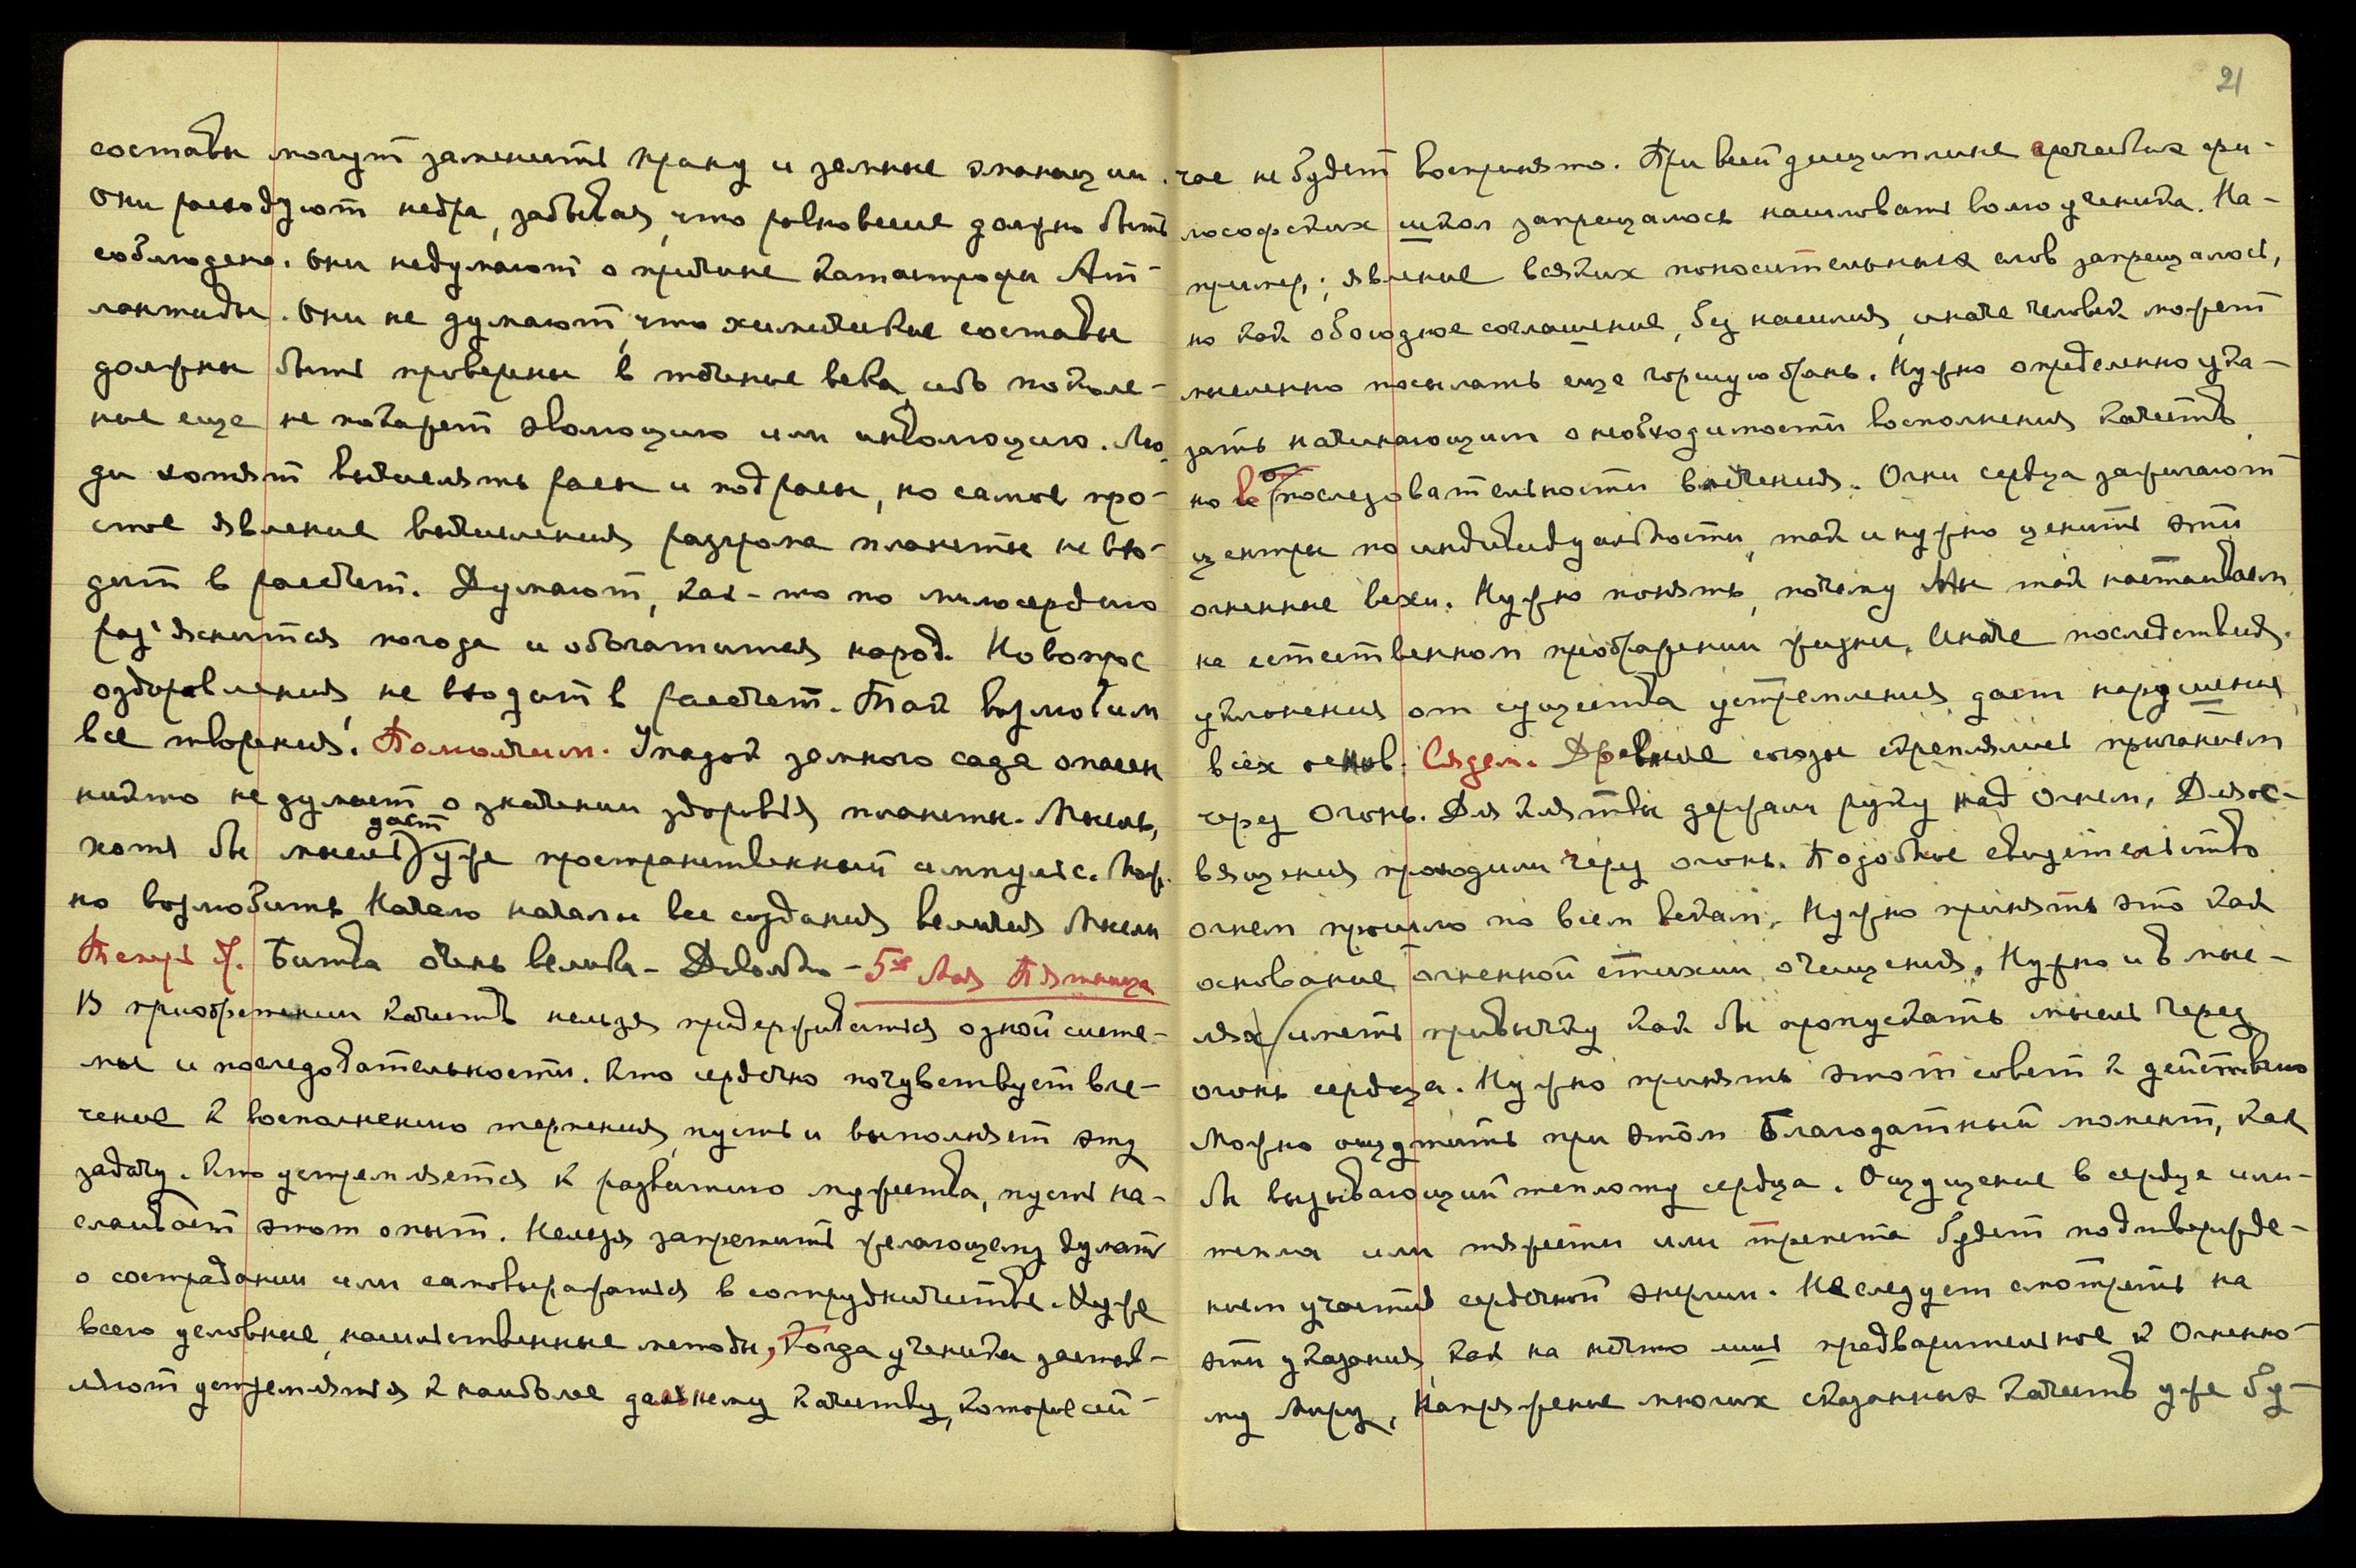 составы могут заменить прану и земные эманации.
Они расходуют недра, забывая, что равновесие должно быть
соблюдено. Они не думают о причине катастрофы Ат-
лантиды. Они не думают, что химические составы
должны быть проверены в течение века, ибо поколе-
ние еще не покажет эволюцию или инволюцию. Лю-
ди хотят вычислять расы и подрасы, но самое про-
стое явление вычисления разгрома планеты не вхо-
дит в расчет. Думают, как-то по милосердию
раз'яснится погода и обогатится народ. Но вопрос
оздоровления не входит в расчет. Так возлюбим
все творения! Помолчим. Упадок земного сада опасен
никто не думает о значении здоровья планеты. Мысль,
хотя бы мысль даст уже пространственный импульс. Мож.
но возлюбить Начало начал и все создания величия Мысли
Теперь У. Битва очень велика - Довольно - 5ое Мая Пятница
В приобретении качеств нельзя придерживаться одной систе-
мы и последовательности. Кто сердечно почувствует вле-
чение к восполнению терпения, пусть и выполняет эту
задачу. Кто устремляется к развитию мужества, пусть на-
слаивает этот опыт. Нельзя запретить желающему думать
о сострадании или самовыражаться в сотрудничестве. Хуже
всего условные, насильственные методы, когда ученика застав-
ляют устремляться к наиболее дальнему качеству, которое сей-
21
час не будет воспринято. При всей дисциплине греческих фи-
лософских школ запрещалось насиловать волю ученика. На-
пример, явление всяких поносительных слов запрещалось,
но как обоюдное соглашение, без насилия, иначе человек может
мысленно посылать еще горшую брань. Нужно определенно ука-
зать начинающим о необходимости восполнения качеств,
но во последовательности влечения. Огни сердца зажигают
центры по индивидуальности, так и нужно ценить эти
огненные вехи. Нужно понять, почему Мы так настаиваем
на естественном преображении жизни. Иначе последствия
уклонения от существа устремления даст нарушения
всех основ. Сядем. Древние союзы скреплялись прыганием
через огонь. Для клятвы держали руку над огнем. Для ос-
вящения проходили через огонь. Подобные свидетельства
огнем прошло по всем векам. Нужно принять это как
основание огненной стихии очищения. Нужно и в мыс-
лях иметь привычку как бы пропускать мысль через
огонь сердца. Нужно принять этот совет к действию
Можно ощутить при этом Благодатный момент, как
бы вызывающий теплоту сердца. Ощущение в сердце или-
тепла или тяжести или трепета будет подтвержде-
нием участия сердечной энергии. Не следует смотреть на
эти указания, как на нечто лишь предварительное к Огненно-
му Миру. Напряжение многих сказанных качеств уже бу-